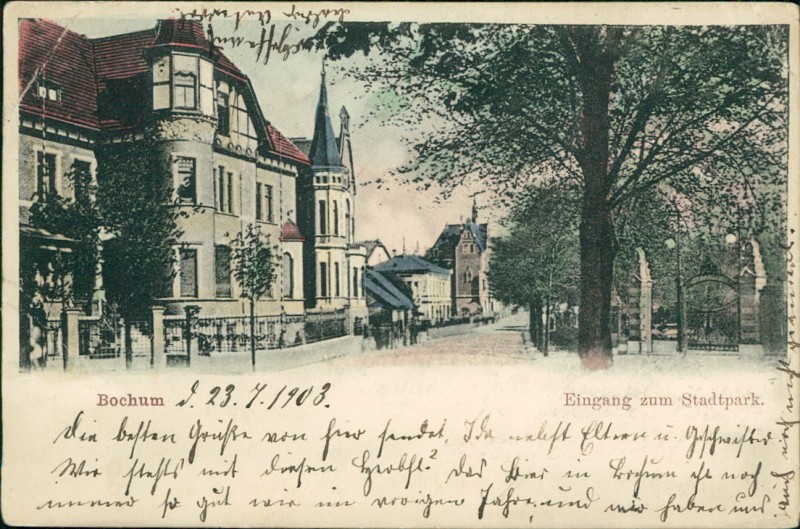 Bochum d. 23.7.1903.
Eingang zum Stadtpark.
Die besten Grüße von hier sendet, Ida nebst Eltern u. Geschwister
Wie stehts mit diesen Herbst? Das Bier in Bochum ist noch
immer so gut wie im vorigen Jahre, und wir haben uns
auch noch nicht